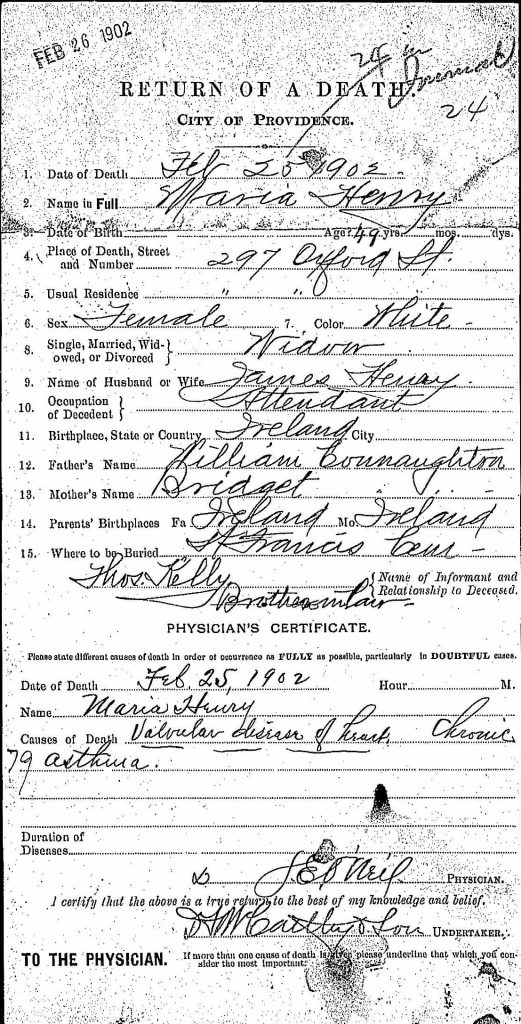 FEB 26 1902
24 in
Journal
24
RETURN OF A DEATH.
CITY OF PROVIDENCE.
1. Date of Death Feb 25 1902
2. Name in Full Maria Henry
3. Date of Birth Age 49 yrs. mos. dys.
4. Place of Death, Street and Number 297 Oxford St.
5. Usual Residence " "
6. Sex Female 7. Color White
8. Single, Married, Widowed, or Divorced } Widow
9. Name of Husband or Wife James Henry
10. Occupation of Decedent } Attendant
11. Birthplace, State or Country Ireland City
12. Father's Name William Connaughton
13. Mother's Name Bridget " "
14. Parents' Birthplaces Fa. Ireland Mo. Ireland
15. Where to be Buried St Francis Cem
Thos. Kelly { Name of Informant and
Brother in law Relationship to Deceased.
PHYSICIAN'S CERTIFICATE.
Please state different causes of death in order of occurrence as FULLY as possible, particularly in DOUBTFUL cases.
Date of Death Feb 25, 1902 Hour M.
Name Maria Henry
Causes of Death Valvular disease of heart, Chronic
79 asthma.
Duration of
Diseases
J E O'Neil PHYSICIAN.
I certify that the above is a true return to the best of my knowledge and belief.
McCarthy & Son UNDERTAKER.
TO THE PHYSICIAN. If more than one cause of death is given please underline that which you consider the most important.